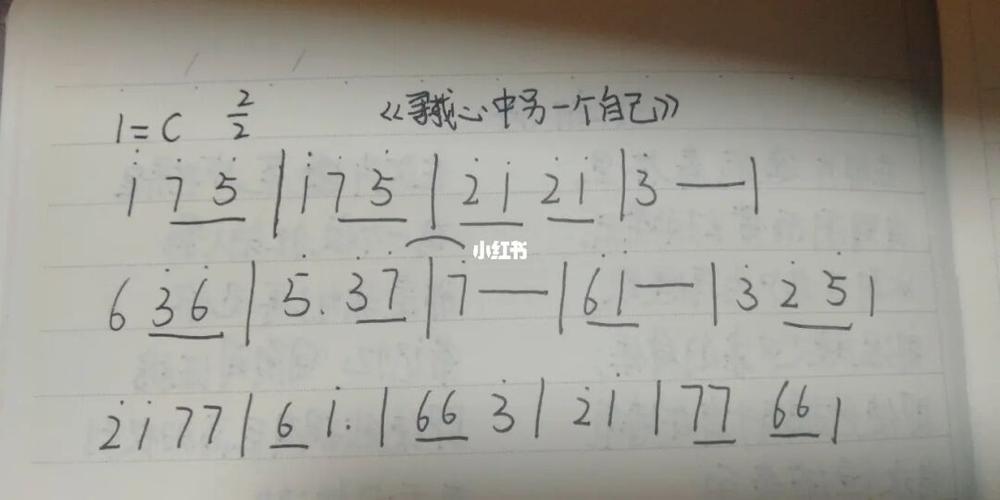 1=C 2/2 《寻找心中另一个自己》
i 7̇ 5̇ | i 7 5̇ | 2̇ i 2̇ i | 3̇ — |
小红书
6 3̇ 6̇ | 5̇. 3̇ 7̇ | 7̇ — | 6̇ i — | 3̇ 2̇ 5̇ |
2̇ i 7 7 | 6̇ i. | 6 6 3̇ | 2 i | 7 7 6 6 |